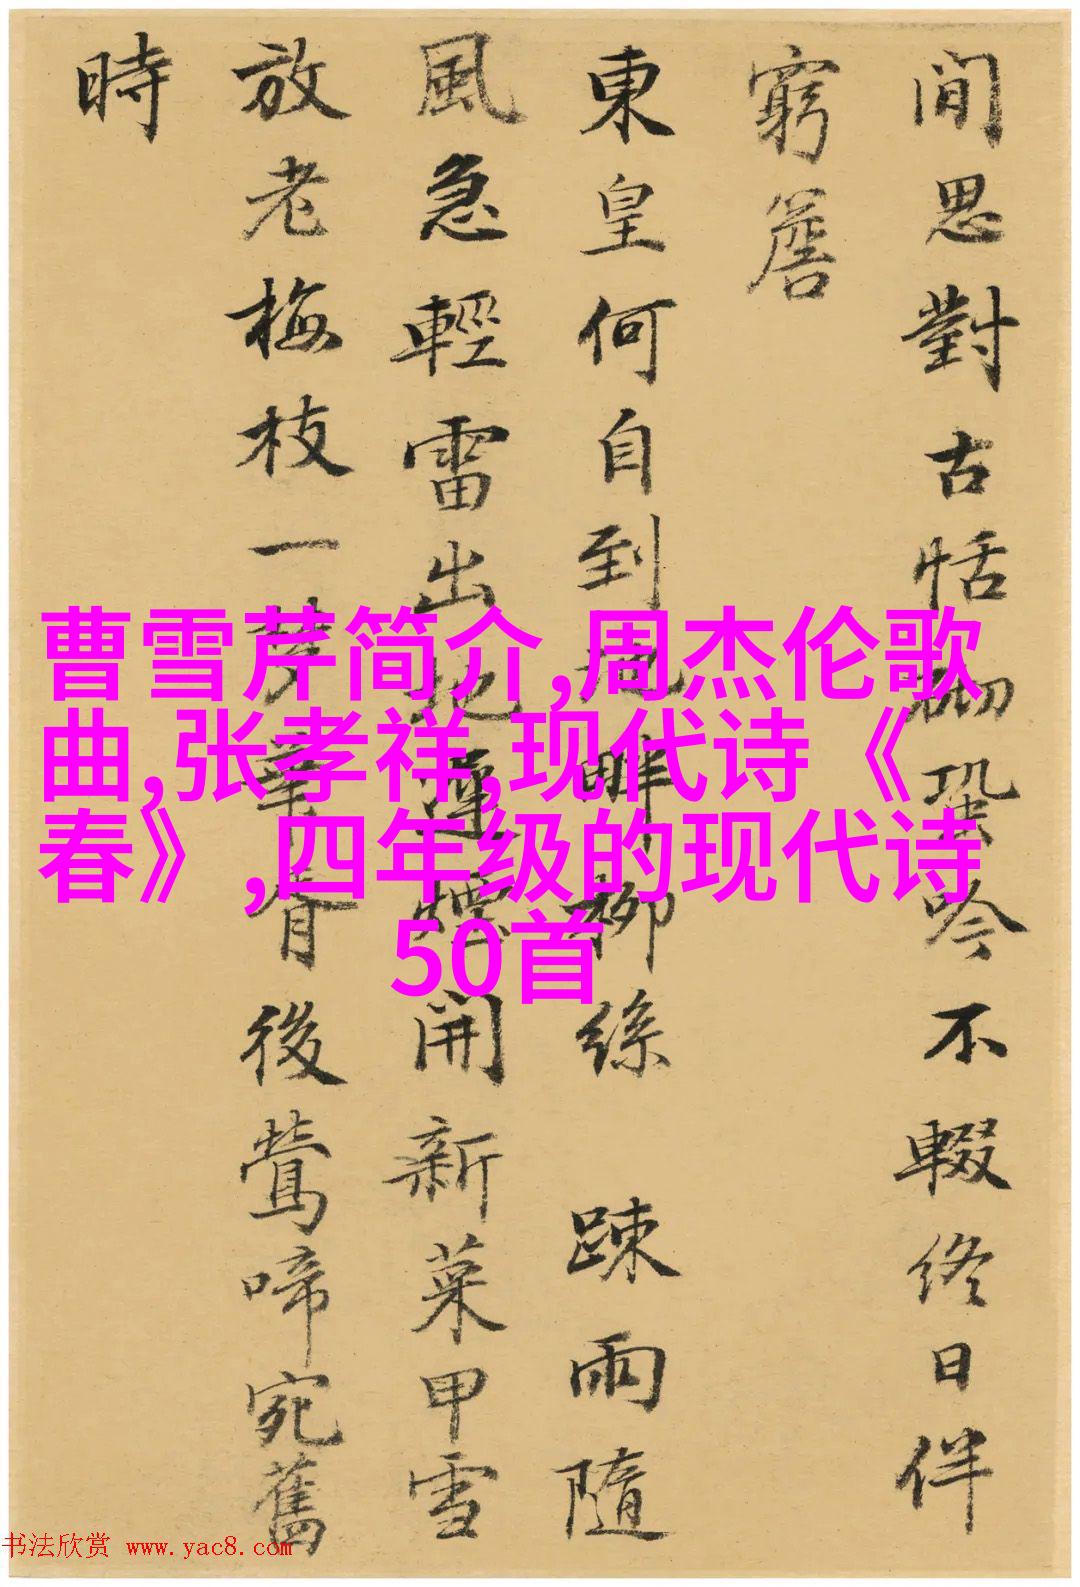 間思對古恬砌蛩吟不輟終日伴
窮簷
東皇何自到畔柳絲踈雨隨
風急輕雷出地開新菜甲雪
放老梅枝一後鶯啼宛舊
時
曹雪芹简介,周杰伦歌
曲,张孝祥,现代诗《
春》,四年级的现代诗
50首
书法欣赏 www.yac8.com